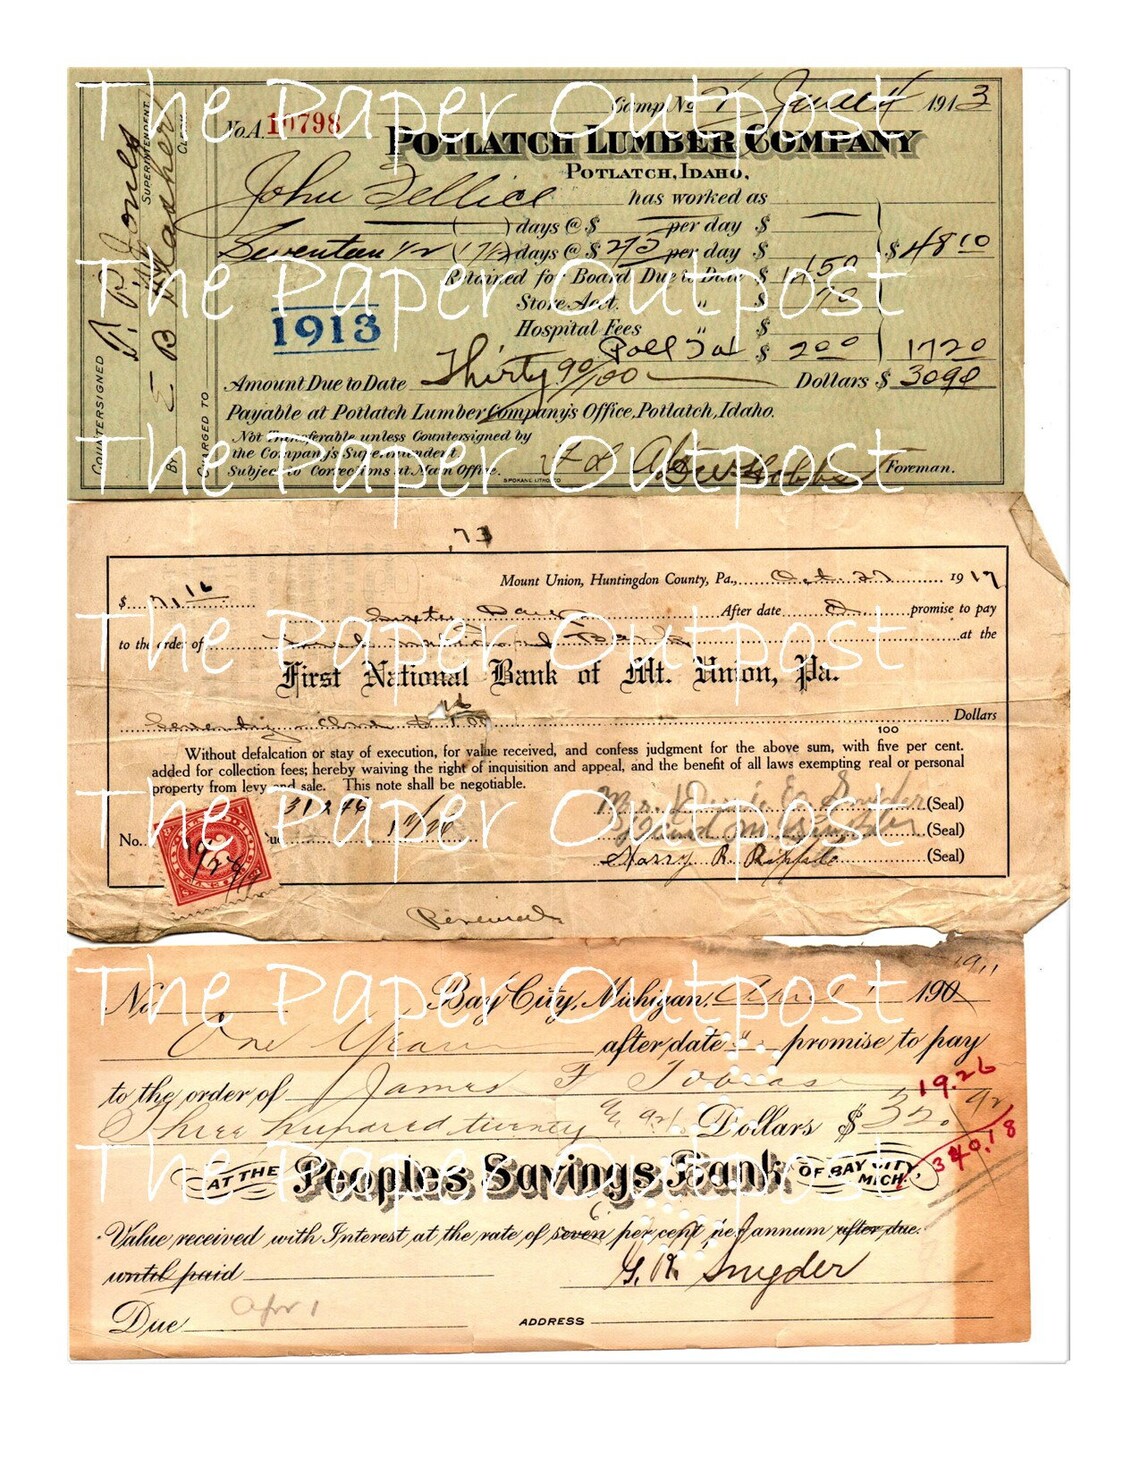 The Paper Outpost
Camp No. June 4 1913
No. A. 10798
POTLATCH LUMBER COMPANY
POTLATCH, IDAHO,
John has worked as
( ) days @ $ per day $
Seventeen 1/2 (17 1/2) days @ $ 2 75 per day $ $ 48 10
The Paper Outpost
Retained for Board Due to Date $
Store Acct. " $
1913
Hospital Fees " $
Poll Tax $ 2 00 17 20
Amount Due to Date Thirty 90/100 Dollars $ 30 90
Payable at Potlatch Lumber Company's Office, Potlatch, Idaho.
Not Transferable unless Countersigned by
the Company's Superintendent.
The Paper Outpost
Subject to Corrections at Main Office.
Foreman.
SPOKANE LITHO. CO
COUNTERSIGNED Jones SUPERINTENDENT
BY E B CLERK
CHARGED TO
73
Mount Union, Huntingdon County, Pa., Oct. 27 1917
$ 71 16
After date promise to pay
The Paper Outpost
to the order of at the
First National Bank of Mt. Union, Pa.
Seventy - One & 16/100 Dollars
100
Without defalcation or stay of execution, for value received, and confess judgment for the above sum, with five per cent.
added for collection fees; hereby waiving the right of inquisition and appeal, and the benefit of all laws exempting real or personal
property from levy and sale. This note shall be negotiable.
The Paper Outpost
31246 (Seal)
No. Due (Seal)
Harry R. Ripple (Seal)
Renewal
The Paper Outpost
1911
No. Bay City, Michigan, April 1 190
One Year after date promise to pay
to the order of James F Tobias 19.26
Three hundred twenty Dollars $ 320. 92
340.18
The Paper Outpost
AT THE Peoples Savings Bank OF BAY CITY, MICH.
6
Value received with Interest at the rate of seven per cent per annum after due.
until paid G. H. Snyder
Due Apr 1 ADDRESS